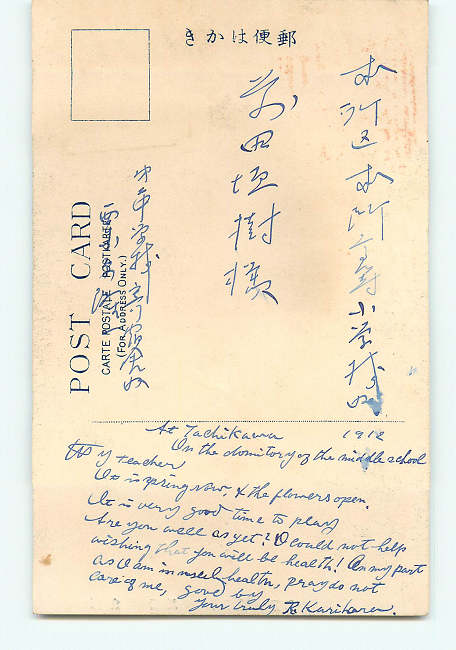 郵便はかき
本所区本所高等小学校内
前田垣樹様
POST CARD
CARTE POSTALE POSTKARTE
(FOR ADDRESS ONLY.)
At Tachikawa 1912
In the domitory of the middle school
My teacher
It is spring now & the flowers open.
It is very good time to play
Are you well as yet? I could not help
wishing that you will be health! On my part
as I am in much health, pray do not
care of me, good by
Your truly K. Karikaren.